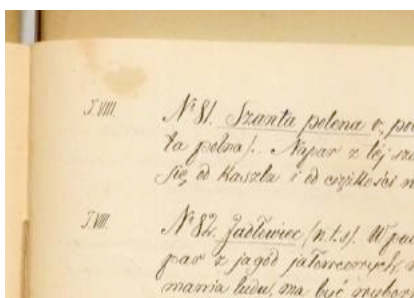 T. VIII.
N° 81. Szanta polena v. po
ta polna). Napar z tej sza
się, od kaszlu i od ciężkości
T. VIII.
N° 82. Jadłowiec (n.t.s). W pa
par z jagód jałowcowych,
mania ludu, ma być wybor